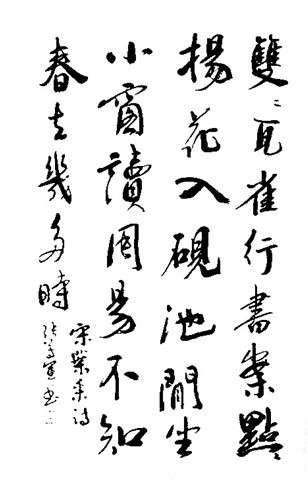 雙〻瓦雀行書案點〻
楊花入硯池閒坐
小窗讀周易不知
春去幾多時
宋葉采詩